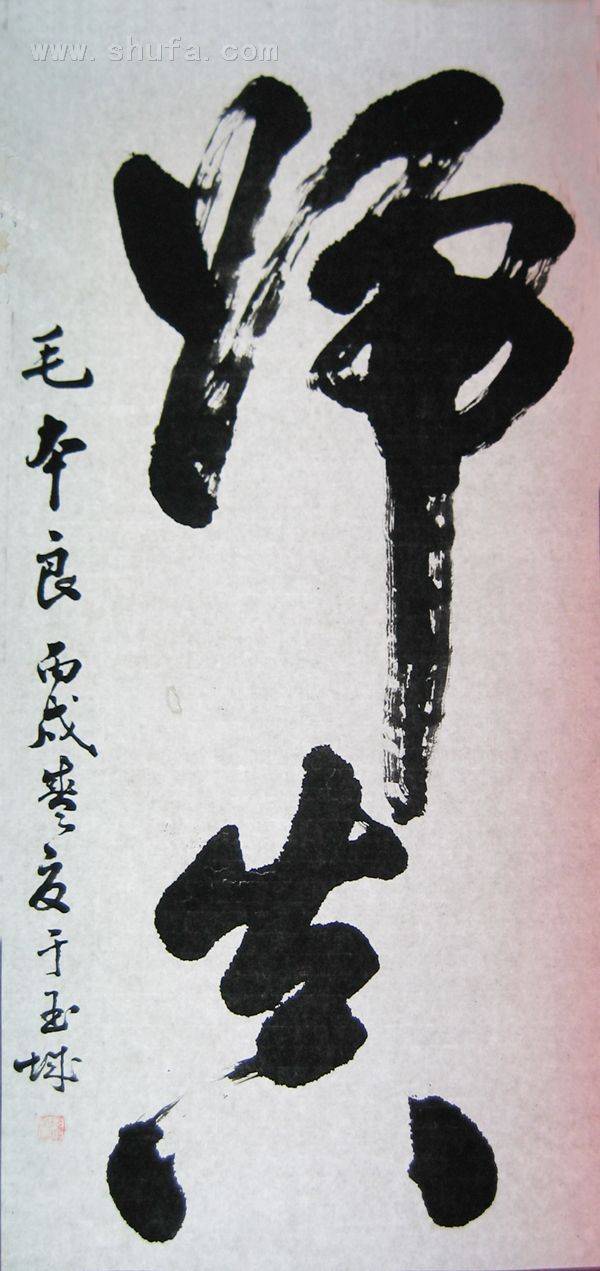 www.shufa.com
歸真
毛本良 丙戌夏于玉城